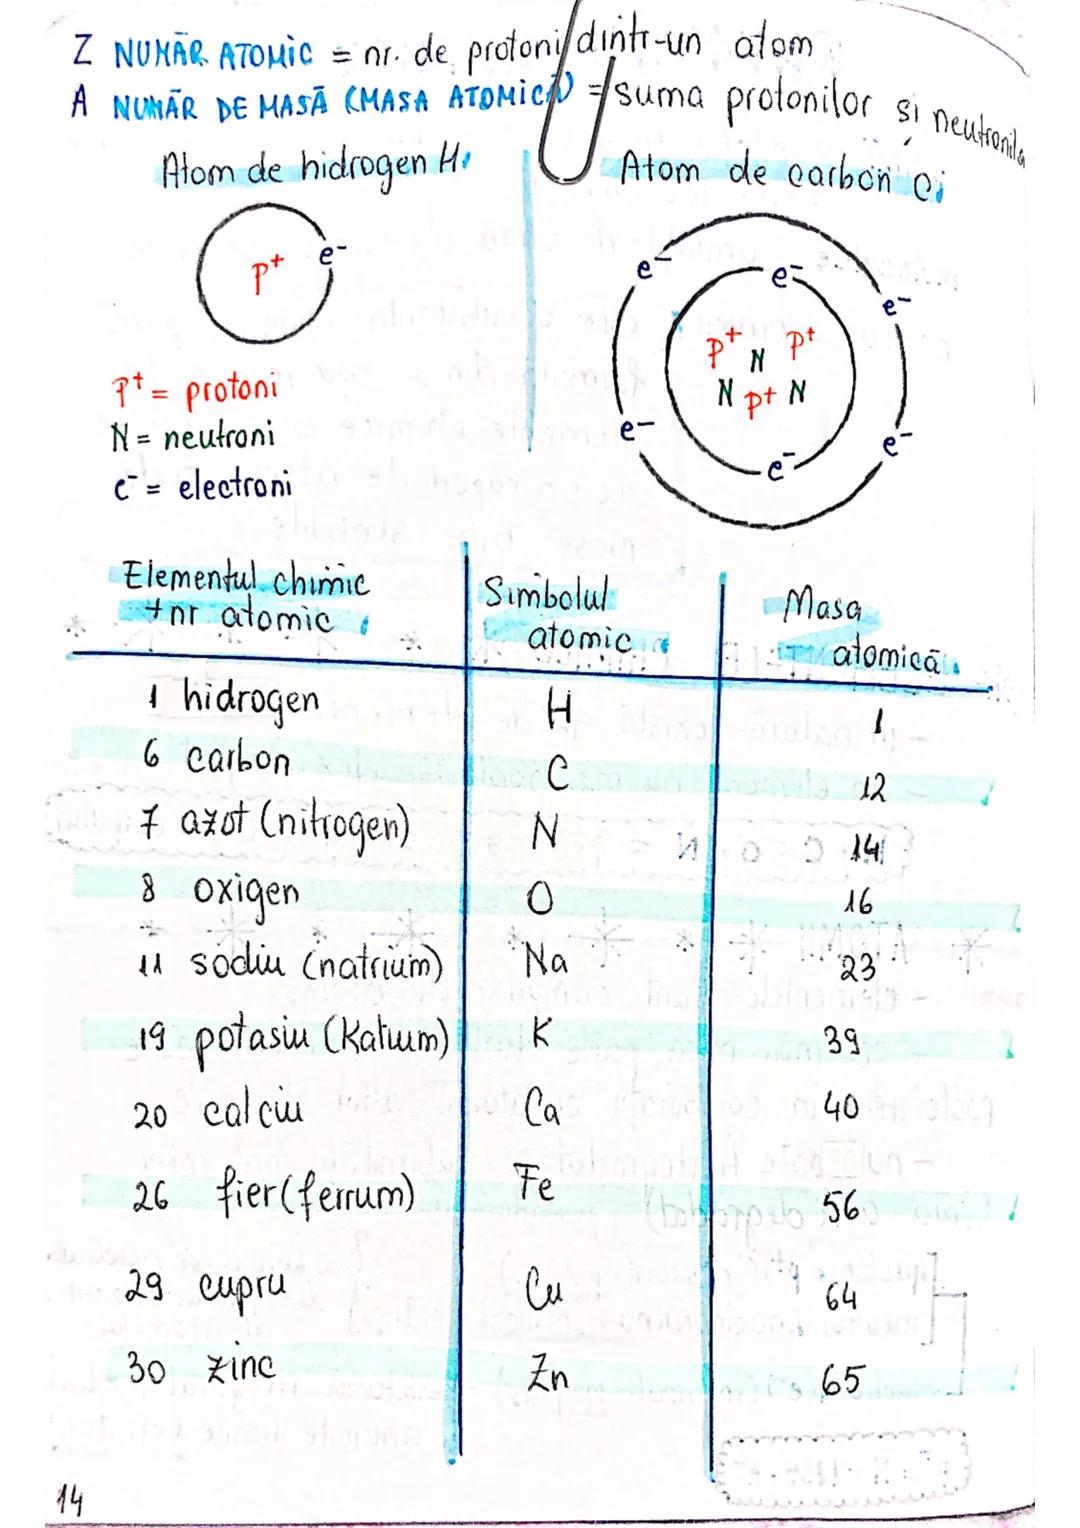 Z NUMĂR ATOMIC = nr. de protoni dintr-un atom
A NUMĂR DE MASĂ (MASA ATOMICĂ) = suma protonilor și neutronilor
Atom de hidrogen H
Atom de carbon C
p+ e-
e- e- e-
p+ N p+
N p+ N
e- e- e-
p+ = protoni
N = neutroni
e- = electroni
Elementul chimic + nr atomic
Simbolul atomic
Masa atomică
1 hidrogen H 1
6 carbon C 12
7 azot (nitrogen) N 14
8 oxigen O 16
11 sodiu (natrium) Na 23
19 potasiu (Kalium) K 39
20 calciu Ca 40
26 fier (ferrum) Fe 56
29 cupru Cu 64
30 zinc Zn 65
14